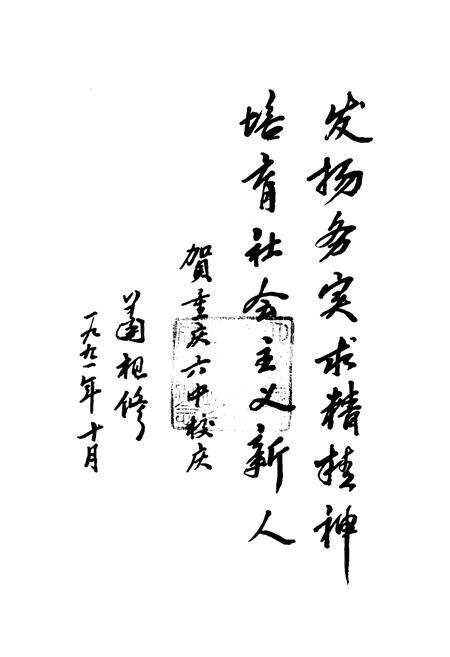 发扬务实求精精神
培育社会主义新人
賀重庆六中校庆
萧祖修
一九九一年十月